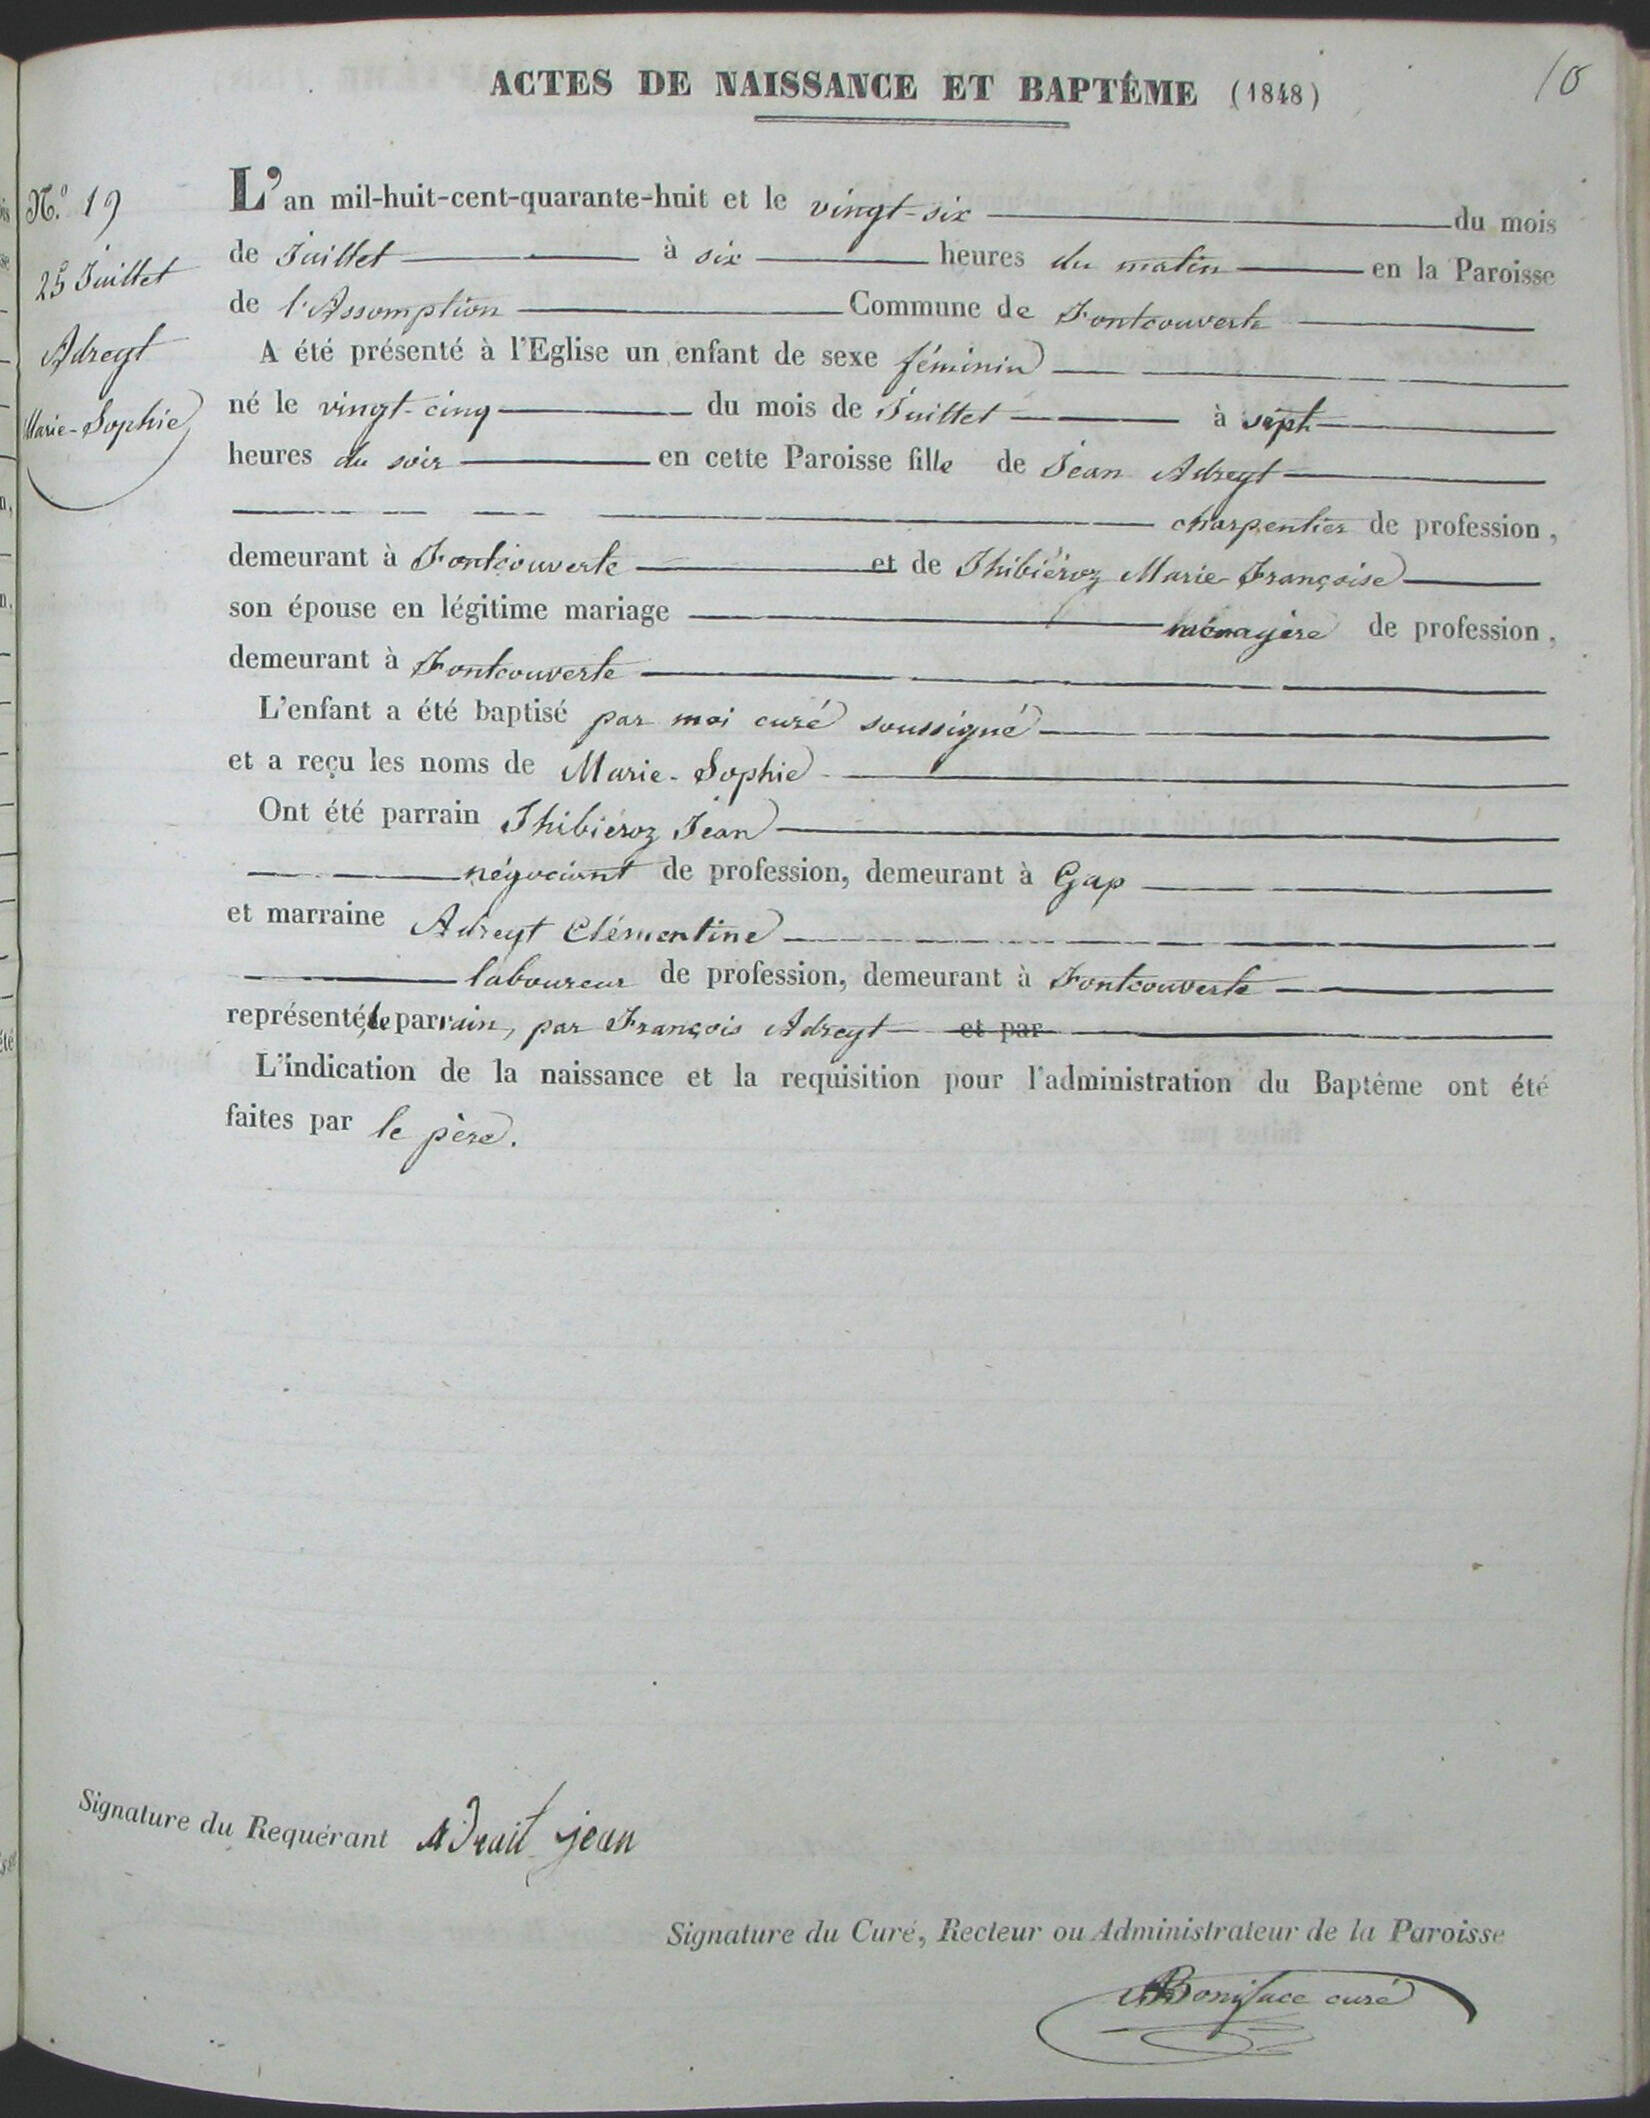 ACTES DE NAISSANCE ET BAPTÊME (1848)
10
N.º 19
25 Juillet
Adreyt
Marie-Sophie
L'an mil-huit-cent-quarante-huit et le vingt-six du mois
de Juillet à six heures du matin en la Paroisse
de l'Assomption Commune de Fontcouverte
A été présenté à l'Eglise un enfant de sexe féminin
né le vingt-cinq du mois de Juillet à sept
heures du soir en cette Paroisse fille de Jean Adreyt
charpentier de profession,
demeurant à Fontcouverte et de Thibiéroz Marie Françoise
son épouse en légitime mariage ménagère de profession,
demeurant à Fontcouverte
L'enfant a été baptisé par moi curé soussigné
et a reçu les noms de Marie-Sophie
Ont été parrain Thibiéroz Jean
négociant de profession, demeurant à Gap
et marraine Adreyt Clémentine
laboureur de profession, demeurant à Fontcouverte
représenté, le parrain, par François Adreyt et par
L'indication de la naissance et la requisition pour l'administration du Baptême ont été
faites par le père.
Signature du Requérant Adrait jean
Signature du Curé, Recteur ou Administrateur de la Paroisse
Boniface curé